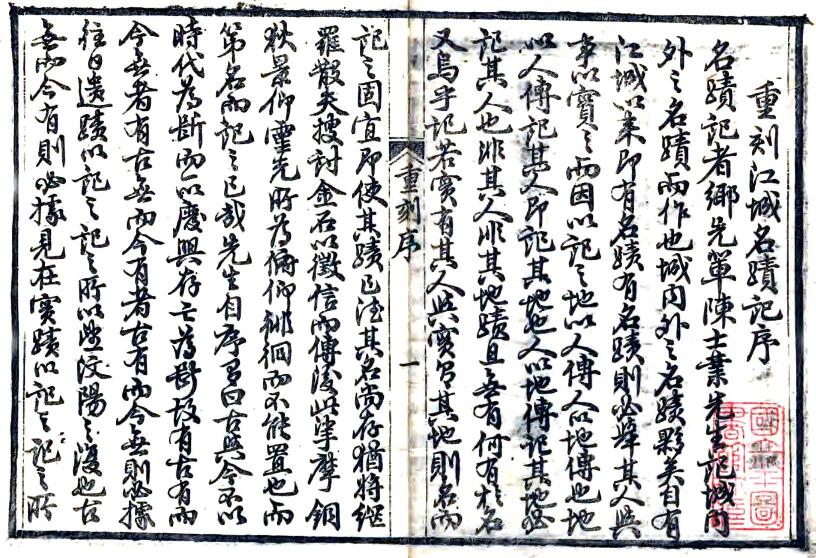 重刻江城名蹟記序
名蹟記者鄉先輩陳士業先生記城內
外之名蹟而作也城內外之名蹟夥矣自有
江城以來即有名蹟有名蹟則必舉其人與
事以實之而因以記之地以人傳人以地傳也地
以人傳記其人即記其地也人以地傳記其地必
記其人也非其人非其地蹟且無有何有於名
又烏乎記若實有其人與實有其地則名而
重刻序
一
記之固宜即使其蹟已湮其名尚存猶將
羅散失搜討金石以徵信而傳後此摩銅
狄景仰靈光所為俯仰徘徊而不能置也而
第名而記之已哉先生自序有曰古與今不以
時代為斷而一以廢興存亡為斷故有古有而
今無者有古無而今有者古有而今無則必據
往日遺蹟以記之記之所以汶陽之復也古
無而今有則必據見在實蹟以記之記之所